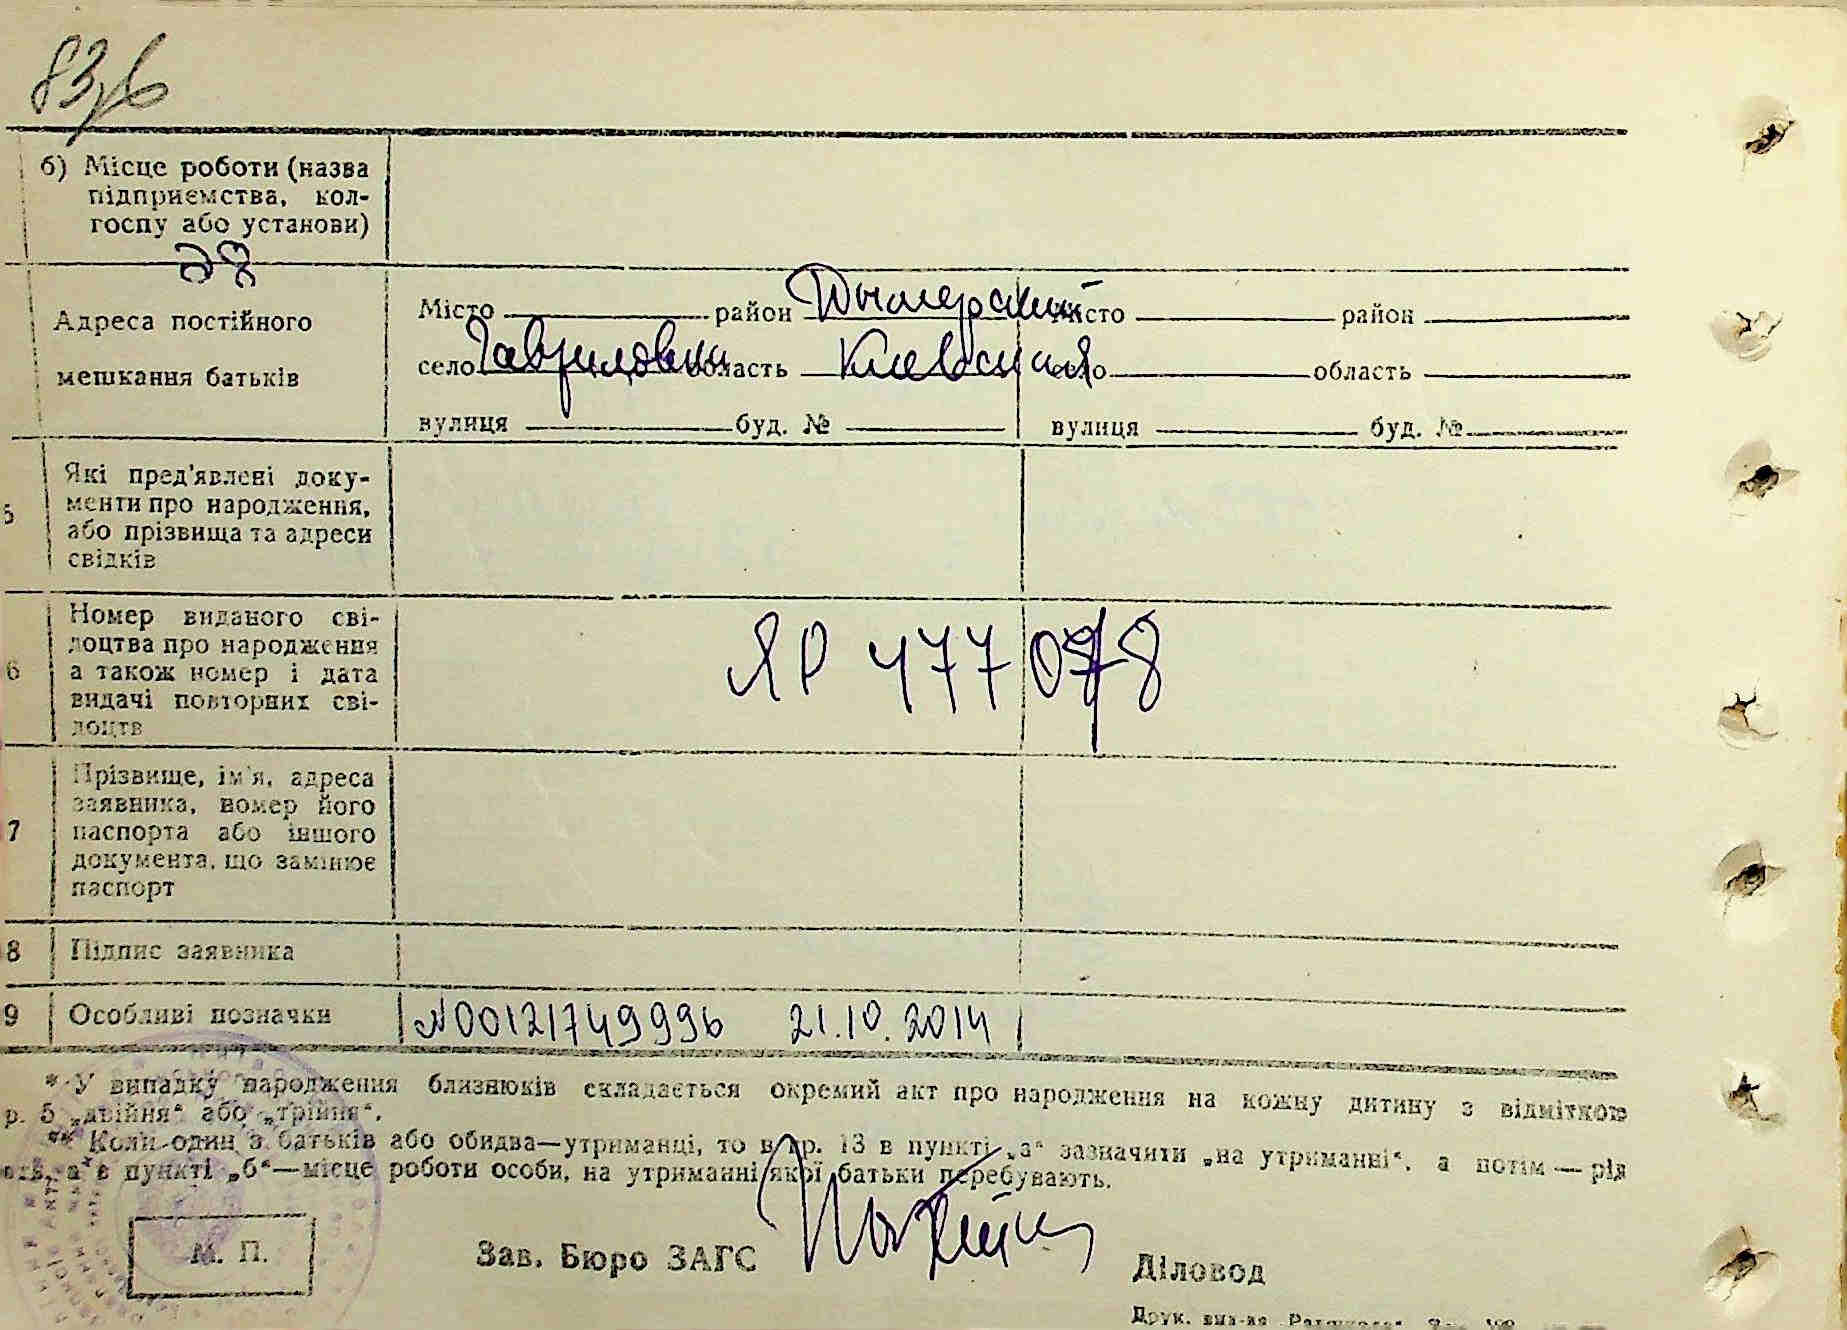 83/в
б) Місце роботи (назва
підприємства, кол-
госпу або установи)
Адреса постійного
мешкання батьків
Місто район Дымерский місто район
село Гавриловка область Киевская село область
вулиця буд. № вулиця буд. №
5 Які пред'явлені доку-
менти про народження,
або прізвища та адреси
свідків
6 Номер виданого сві-
доцтва про народження
а також номер і дата
видачі повторних сві-
доцтв
ЯР 477078
7 Прізвище, ім'я, адреса
заявника, номер його
паспорта або іншого
документа, що замінює
паспорт
8 Підпис заявника
9 Особливі позначки N00121749996 21.10.2014
* У випадку народження близнюків складається окремий акт про народження на кожну дитину з відміткою
р. 5 „двійня“ або „трійня“.
** Коли один з батьків або обидва—утриманці, то в гр. 13 в пункті „а“ зазначити „на утриманні“, а потім — рід
а в пункті „б“—місце роботи особи, на утриманні якої батьки перебувають.
М. П.
Зав. Бюро ЗАГС
Діловод
Друк. вид-ва